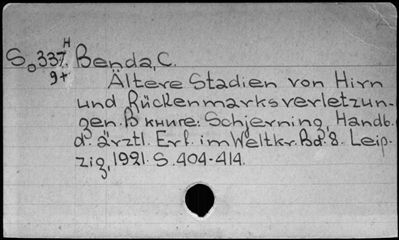 S₀337ᴴ Benda, C.
9+
Ältere Stadien von Hirn
und Rückenmarksverletzun-
gen. В книге: Schjerning, Handb.
d. ärztl. Erf. im Weltkr. Bd. 8. Leip-
zig, 1921. S. 404-414.